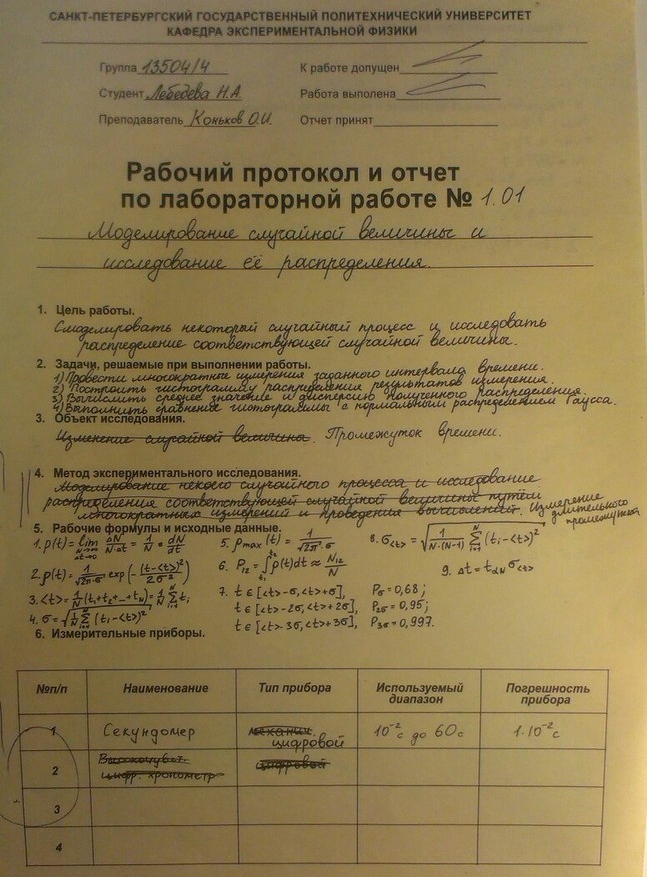 САНКТ-ПЕТЕРБУРГСКИЙ ГОСУДАРСТВЕННЫЙ ПОЛИТЕХНИЧЕСКИЙ УНИВЕРСИТЕТ
КАФЕДРА ЭКСПЕРИМЕНТАЛЬНОЙ ФИЗИКИ
Группа 13504/4 К работе допущен
Студент Лебедева Н.А. Работа выполена
Преподаватель Коньков О.И. Отчет принят
Рабочий протокол и отчет
по лабораторной работе № 1.01
Моделирование случайной величины и
исследование её распределения.
1. Цель работы.
Смоделировать некоторый случайный процесс и исследовать
распределение соответствующей случайной величины.
2. Задачи, решаемые при выполнении работы.
1) Провести многократные измерения заданного интервала времени.
2) Построить гистограмму распределения результатов измерения.
3) Вычислить среднее значение и дисперсию полученного распределения.
4) Выполнить сравнение гистограммы с нормальным распределением Гаусса.
3. Объект исследования.
Изменение случайной величины. Промежуток времени.
4. Метод экспериментального исследования.
Моделирование некоего случайного процесса и исследование
распределения соответствующей случайной величины путём
многократных измерений и проведения вычислений. Измерение
длительного
промежутка
5. Рабочие формулы и исходные данные.
1. ρ(t) = lim N→∞ Δt→0 ΔN/(N·Δt) = 1/N · dN/dt
2. ρ(t) = 1/(√2π·σ) exp(-(t-<t>)²/2σ²)
3. <t> = 1/N (t₁+t₂+...+t_N) = 1/N Σ t_i
4. σ = √(1/N Σ (t_i-<t>)²)
5. ρ_max(t) = 1/(√2π·σ)
6. P₁₂ = ∫ρ(t)dt ≈ N₁₂/N
7. t ∈ [<t>-σ, <t>+σ], P_σ = 0,68;
t ∈ [<t>-2σ, <t>+2σ], P_2σ = 0,95;
t ∈ [<t>-3σ, <t>+3σ], P_3σ = 0,997.
8. σ_<t> = √(1/(N·(N-1)) Σ (t_i-<t>)²)
9. Δt = t_αN σ_<t>
6. Измерительные приборы.
№п/п Наименование Тип прибора Используемый диапазон Погрешность прибора
1 Секундомер механич. цифровой 10⁻²с до 60с 1·10⁻²с
2 Высокочувст. цифр. хронометр цифровой
3
4